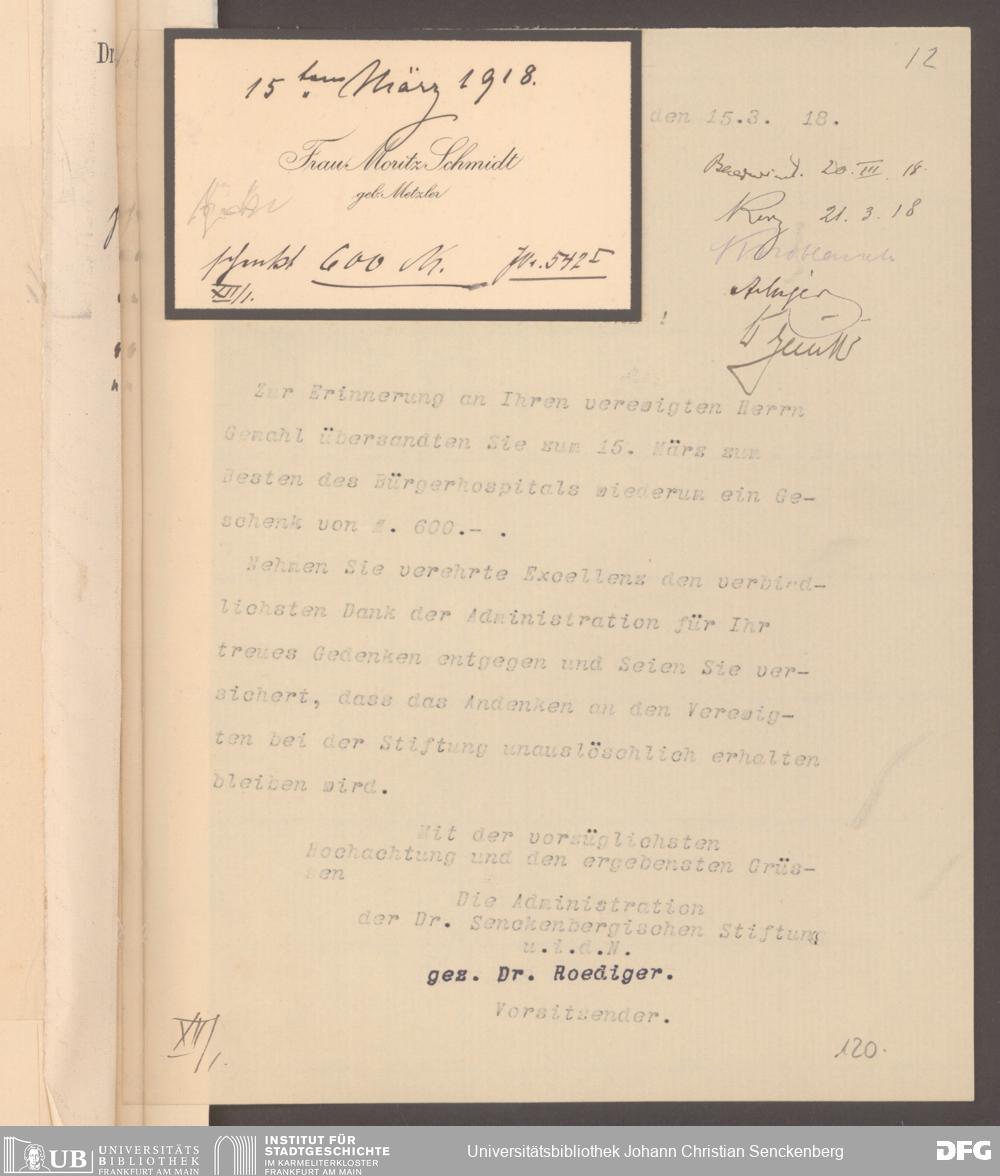 12
15ten März 1918.
Frau Moritz Schmidt
geb. Metzler
schenkt 600 M. Jh. 542 I
XII/1.
den 15.3. 18.
20. III. 18.
21. 3. 18
!
Zur Erinnerung an Ihren verewigten Herrn
Gemahl übersandten Sie zum 15. März zum
Besten des Bürgerhospitals wiederum ein Ge-
schenk von M. 600.- .
Nehmen Sie verehrte Excellenz den verbind-
lichsten Dank der Administration für Ihr
treues Gedenken entgegen und Seien Sie ver-
sichert, dass das Andenken an den Verewig-
ten bei der Stiftung unauslöschlich erhalten
bleiben wird.
Mit der vorzüglichsten
Hochachtung und den ergebensten Grüs-
sen
Die Administration
der Dr. Senckenbergischen Stiftung
u.i.d.N.
gez. Dr. Roediger.
Vorsitzender.
XII/1.
120.
Dr.
UB UNIVERSITÄTS
BIBLIOTHEK
FRANKFURT AM MAIN
INSTITUT FÜR
STADTGESCHICHTE
IM KARMELITERKLOSTER
FRANKFURT AM MAIN
Universitätsbibliothek Johann Christian Senckenberg
DFG